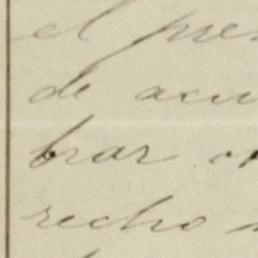 el pre
de acu
brar
recho